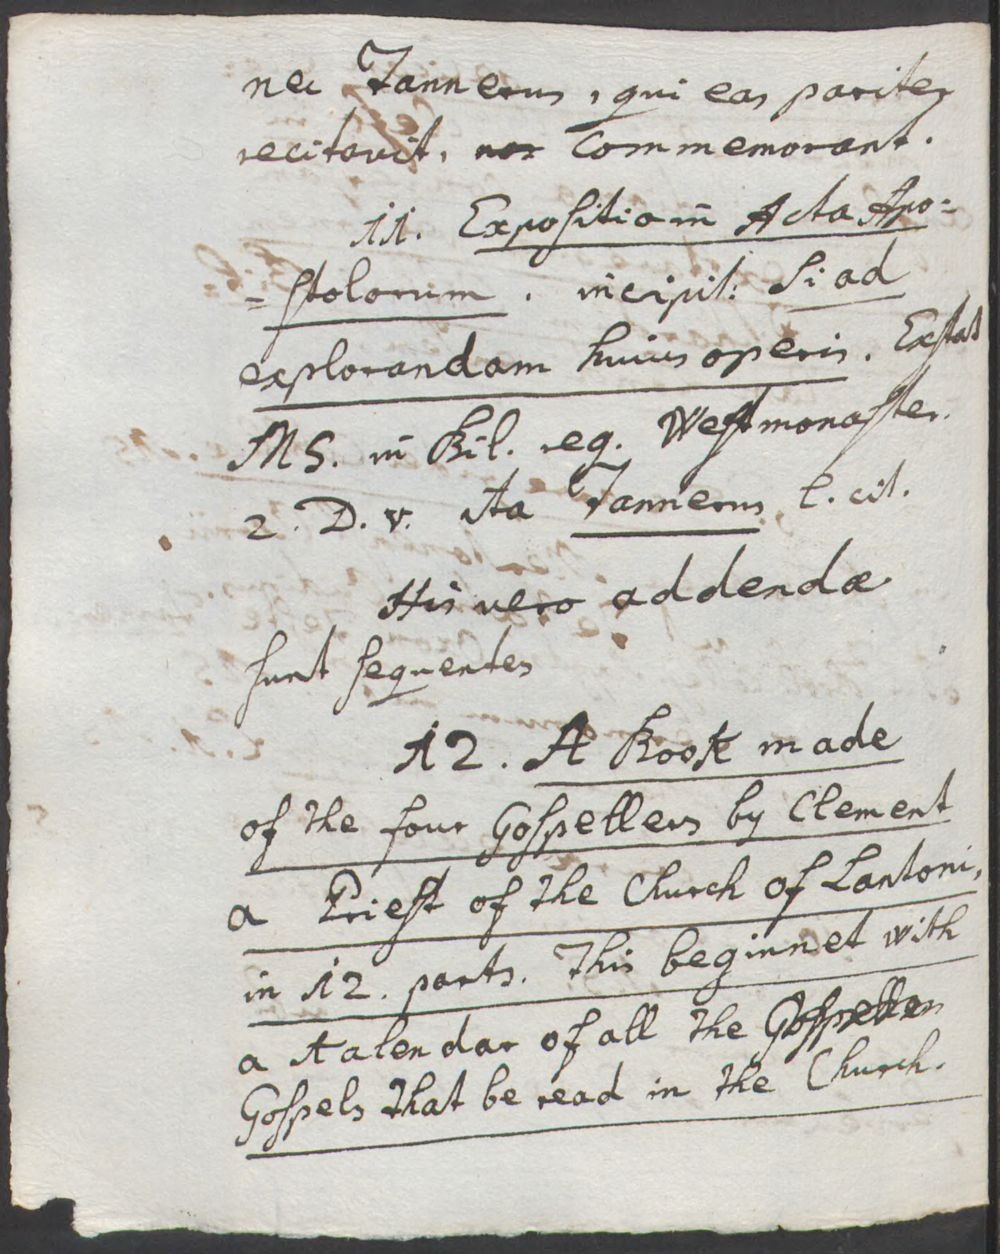 nec Tannerus, qui eas pariter
recitavit, non commemorant.
11. Expositio in Acta Apo=
=stolorum. incipit: Si ad
explorandam huius operis. Extat
MS. in Bil. reg. Westmonaster.
2. D. v. ita Tannerus l. cit.
His vero addendæ
sunt sequentes
12. A Book made
of the four Gospellers by Clement
a Priest of the Church of Lantoni,
in 12. parts. This beginnet with
a Kalendar of all the Gospellers
Gospels that be read in the Church.